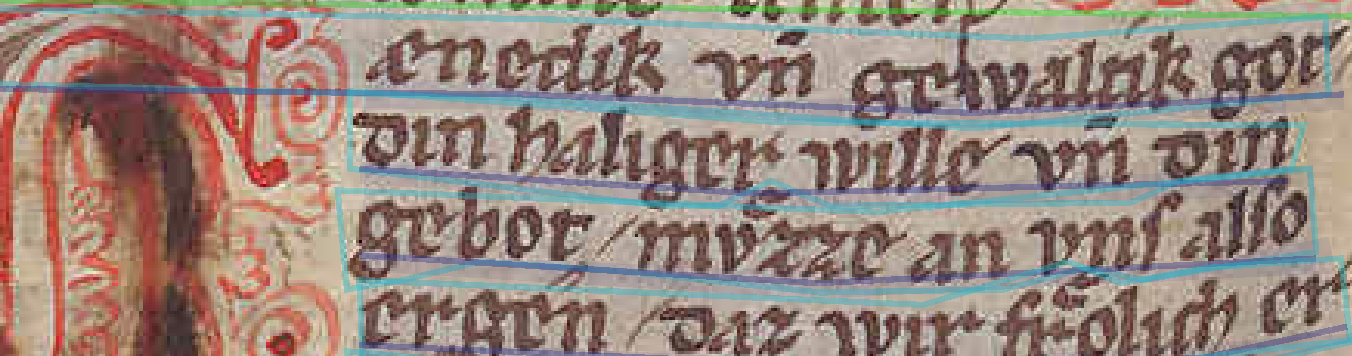 ænedik vn̄ gewaltik got
din haliger wille vn̄ din
gebot / mvͤzze an vns also
ergen / daz wir frͤolich er